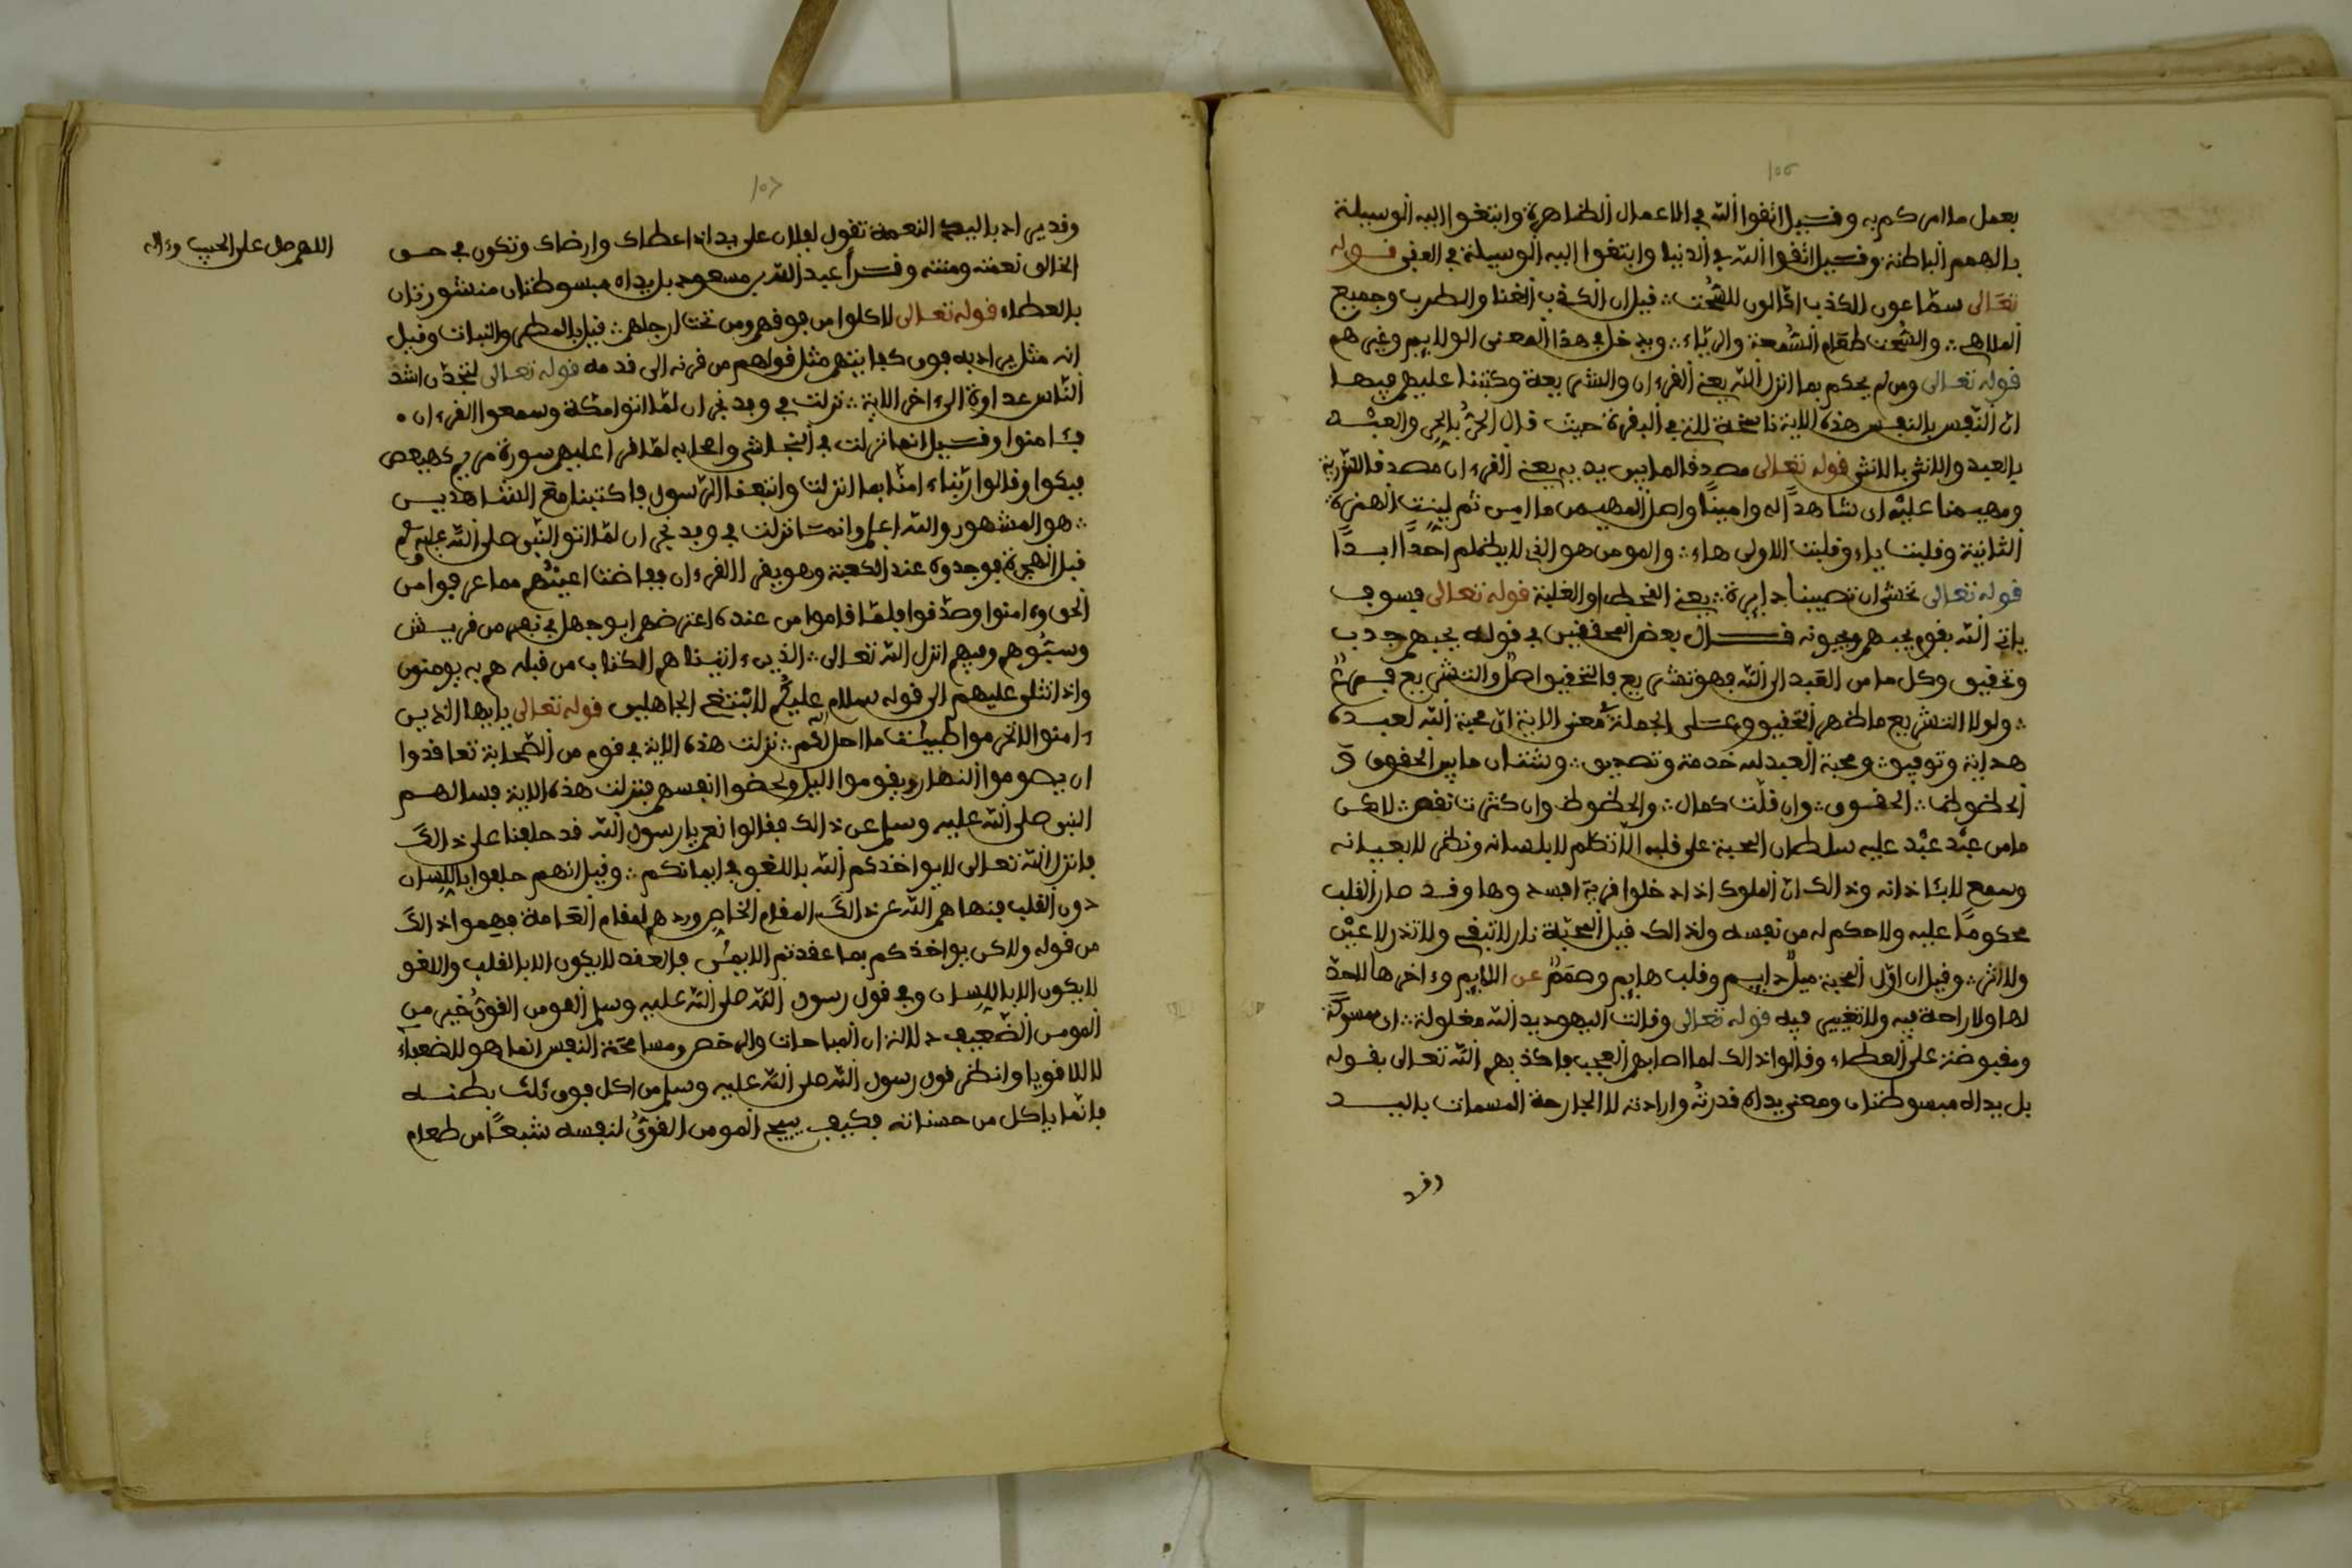 بعمل ما امركم به وقيل اتقوا الله في الاعمال الظاهرة وابتغوا اليه الوسيلة
بالهمم الباطنة وقيل اتقوا الله في الدنيا وابتغوا اليه الوسيلة في العقبى قوله
تعالى سمّاعون للكذب اكّالون للسُّحت ؞ قيل ان الكذب الغنا والطرب وجميع
الملاهي ؞ والسُّحت طعام السُّمعة والريّاء ؞ ويدخل في هذا المعنى الولايم وغيرهم
قوله تعالى ومن لم يحكم بما انزل الله يعني القرءان والشريعة وكتبنا عليهم فيها
انّ النّفس بالنفس هذه الاية ناسخة للتي في البقرة حيث قال الحُرُّ بالحرِ والعبْد
بالعبد والانثى بالانثى قوله تعالى مصدقا لما بين يديه يعني القرءان مصدقا للتورية
ومهيمنا عليْه اى شاهداً له وامينًا واصل المهيمن مااءمن ثم لينت الهمزة
الثانية وقلبت ياء وقلبت الاولى هاء ؞ والمومن هو الذى لا يظلم احدًا ابدًا
قوله تعالى نخشى ان تصيبنا دايرة ؞ يعني القحط او الغلبة قوله تعالى فسوف
ياتي الله بقوم يحبهم ويحبونه قال بعض المحققين في قوله يحبهم جذب
وتحقيق وكل ما من العبد الى الله فهو تشريع فالتحقيق اصلٌ والتشريع فرعٌ
؞ ولولا التشريع ما ظهر التحقيق وعلى الجملة معنى الاية انّ محبة الله لعبده
هداية وتوفيق ؞ ومحبة العبد له خدمة وتصديق ؞ وشتان ما بين الحقوق وَ
الحظوظ ؞ الحقوق ؞ وان قلّت كمال ؞ والحظوظ وان كثرت نقص ؞ لاكن
ما من عبْد عبْد عليه سلطان المحبة على قلبه الّا تكلم لا بلسانه ونظر لا بعيانه
وسمع لا بئاذانه وذالك انّ الملوك اذا دخلوا قرية افسدوها وقد صار القلب
محكومًا عليه ولا حكم له من نفسه ولذالك قيل المحبّة نار لا تبقى ولا تذر لا عيْن
ولا اثر ؞ وقيل ان اوّل المحبة ميلٌ دايم وقلب هايم وصمَمٌ عن اللايم وءاخرها لا حدّ
لها ولا راحة فيه ولا تغيير فيه قوله تعالى وقالت اليهود يد الله مغلولة ؞ اى ممسوكة
ومقبوضة على العطاء وقالوا ذالك لما اصابهم فاكذبهم الله تعالى بقوله
بل يداه مبسوطتان ومعنى يداه قدرتُه وارادته لا الجارحة المسمات باليد
وقد
وقد يراد باليد النعمة تقول لفلان على يد اذا اعطاك وارضاك وتكون في حق
الخالق نعمته ومنته وقرأ عبد الله بن مسعود بل يداه مبسوطتان منشورتان
بالعطاء قوله تعالى لاكلوا من فوقهم ومن تحت ارجلهم ؞ قيل بالمطر والنبات وقيل
انه مثل يراد به فوق كفايتهم مثل قولهم من قرنه الى قدمه قوله تعالى لتجدن اشد
النّاس عداوة الى ءاخر الاية ؞ نزلت في وفد نجران لمّا اتوا مكة وسمعوا القرءان .
فئامنوا وقيل انما نزلت في النجاشي واصحابه لمّا قرا عليهم سورة مريم كهيعص
فبكوا وقالوا ربّنا ءامنّا بما انزلت واتبعنا الرّسول فاكتبنا مع الشاهدين
؞ هو المشهور والله اعلم وانما نزلت في وفد نجران لمّا اتو النّبى صلى الله عليه وسلم
قبل الهجرة فوجدوه عند الكعبة وهو يقرا القرءان ففاضت اعينُهم مما عرفوا من
الحق وءامنوا وصدّقوا فلمّا قاموا من عنده اعترضهم ابو جهل في نفر من قريش
وسبُّوهم وفيهم انزل الله تعالى ؞ الذين ءاتيناهم الكتاب من قبله هم به يومنون
واذا تتلى عليهم الى قوله سلام عليكُم لا نبْتغى الجاهلين قوله تعالى يايها الذين
ءامنوا لا تحرموا طيبات ما احل الله لكم ؞ نزلت هذه الاية في قوم من الصّحابة تعاقدوا
ان يصوموا النهار ويقوموا اليل ويخصوا انفسهم فنزلت هذه الاية فسالهم
النبى صلى الله عليه وسلم عن ذالك فقالوا نعم يا رسول الله قد حلفنا على ذالكَ
فانزل الله تعالى لا يواخذكم الله باللغو في ايمانكم ؞ وقيل انهم حلفوا باللسان
دون القلب فنهاهم الله عن ذالكَ المقام الخاص وردهم لمقام العامة ففهموا ذالكَ
من قوله ولاكن يواخذكم بما عقدتم الايمٰن فالعقد لا يكون الا بالقلب واللغو
لا يكون الا باللسان وفي قول رسول الله صلى الله عليه وسلم المومن القوىُّ خير من
المومن الضّعيف دلالة ان المباحات والرخص ومسامحَة النفس انما هو للضعفاء
لا للاقويا وانظر قول رسول الله صلى الله عليه وسلم من اكل فوق ثلث بطنه
فانّما ياكل من حسناته فكيف يبيح المومن القوىُّ لنفسه شبعًا من طعام
اللهم صل على الحبيب وءاله